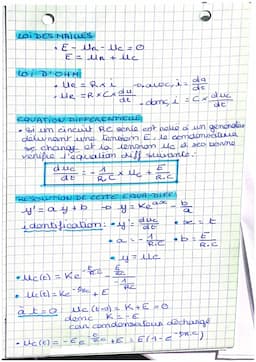 LOI DES MAILLES
• E - UR - UC = 0
E = UR + UC
LOI D'OHM
• UR = R × i avec, i = dq/dt
• UR = R × C × du/dt donc, i = C × duc/dt
EQUATION DIFFERENTIELLE
• Si un circuit RC série est relié à un générateur
délivrant une tension E, le condensateur
se charge et la tension uc à ses bornes
vérifie l'équation diff suivante :
duc/dt = -1/R.C × uc + E/R.C
RESOLUTION DE CETTE EQUA DIFF
y' = ay + b → y = Ke^ax - b/a
identification : • y' = duc/dt • x = t
• a = -1/R.C • b = E/R.C
• y = uc
• uc(t) = Ke
• uc(t) = Ke + E
à t = 0 uc(t=0) = K + E = 0
donc K = -E
car condensateur déchargé